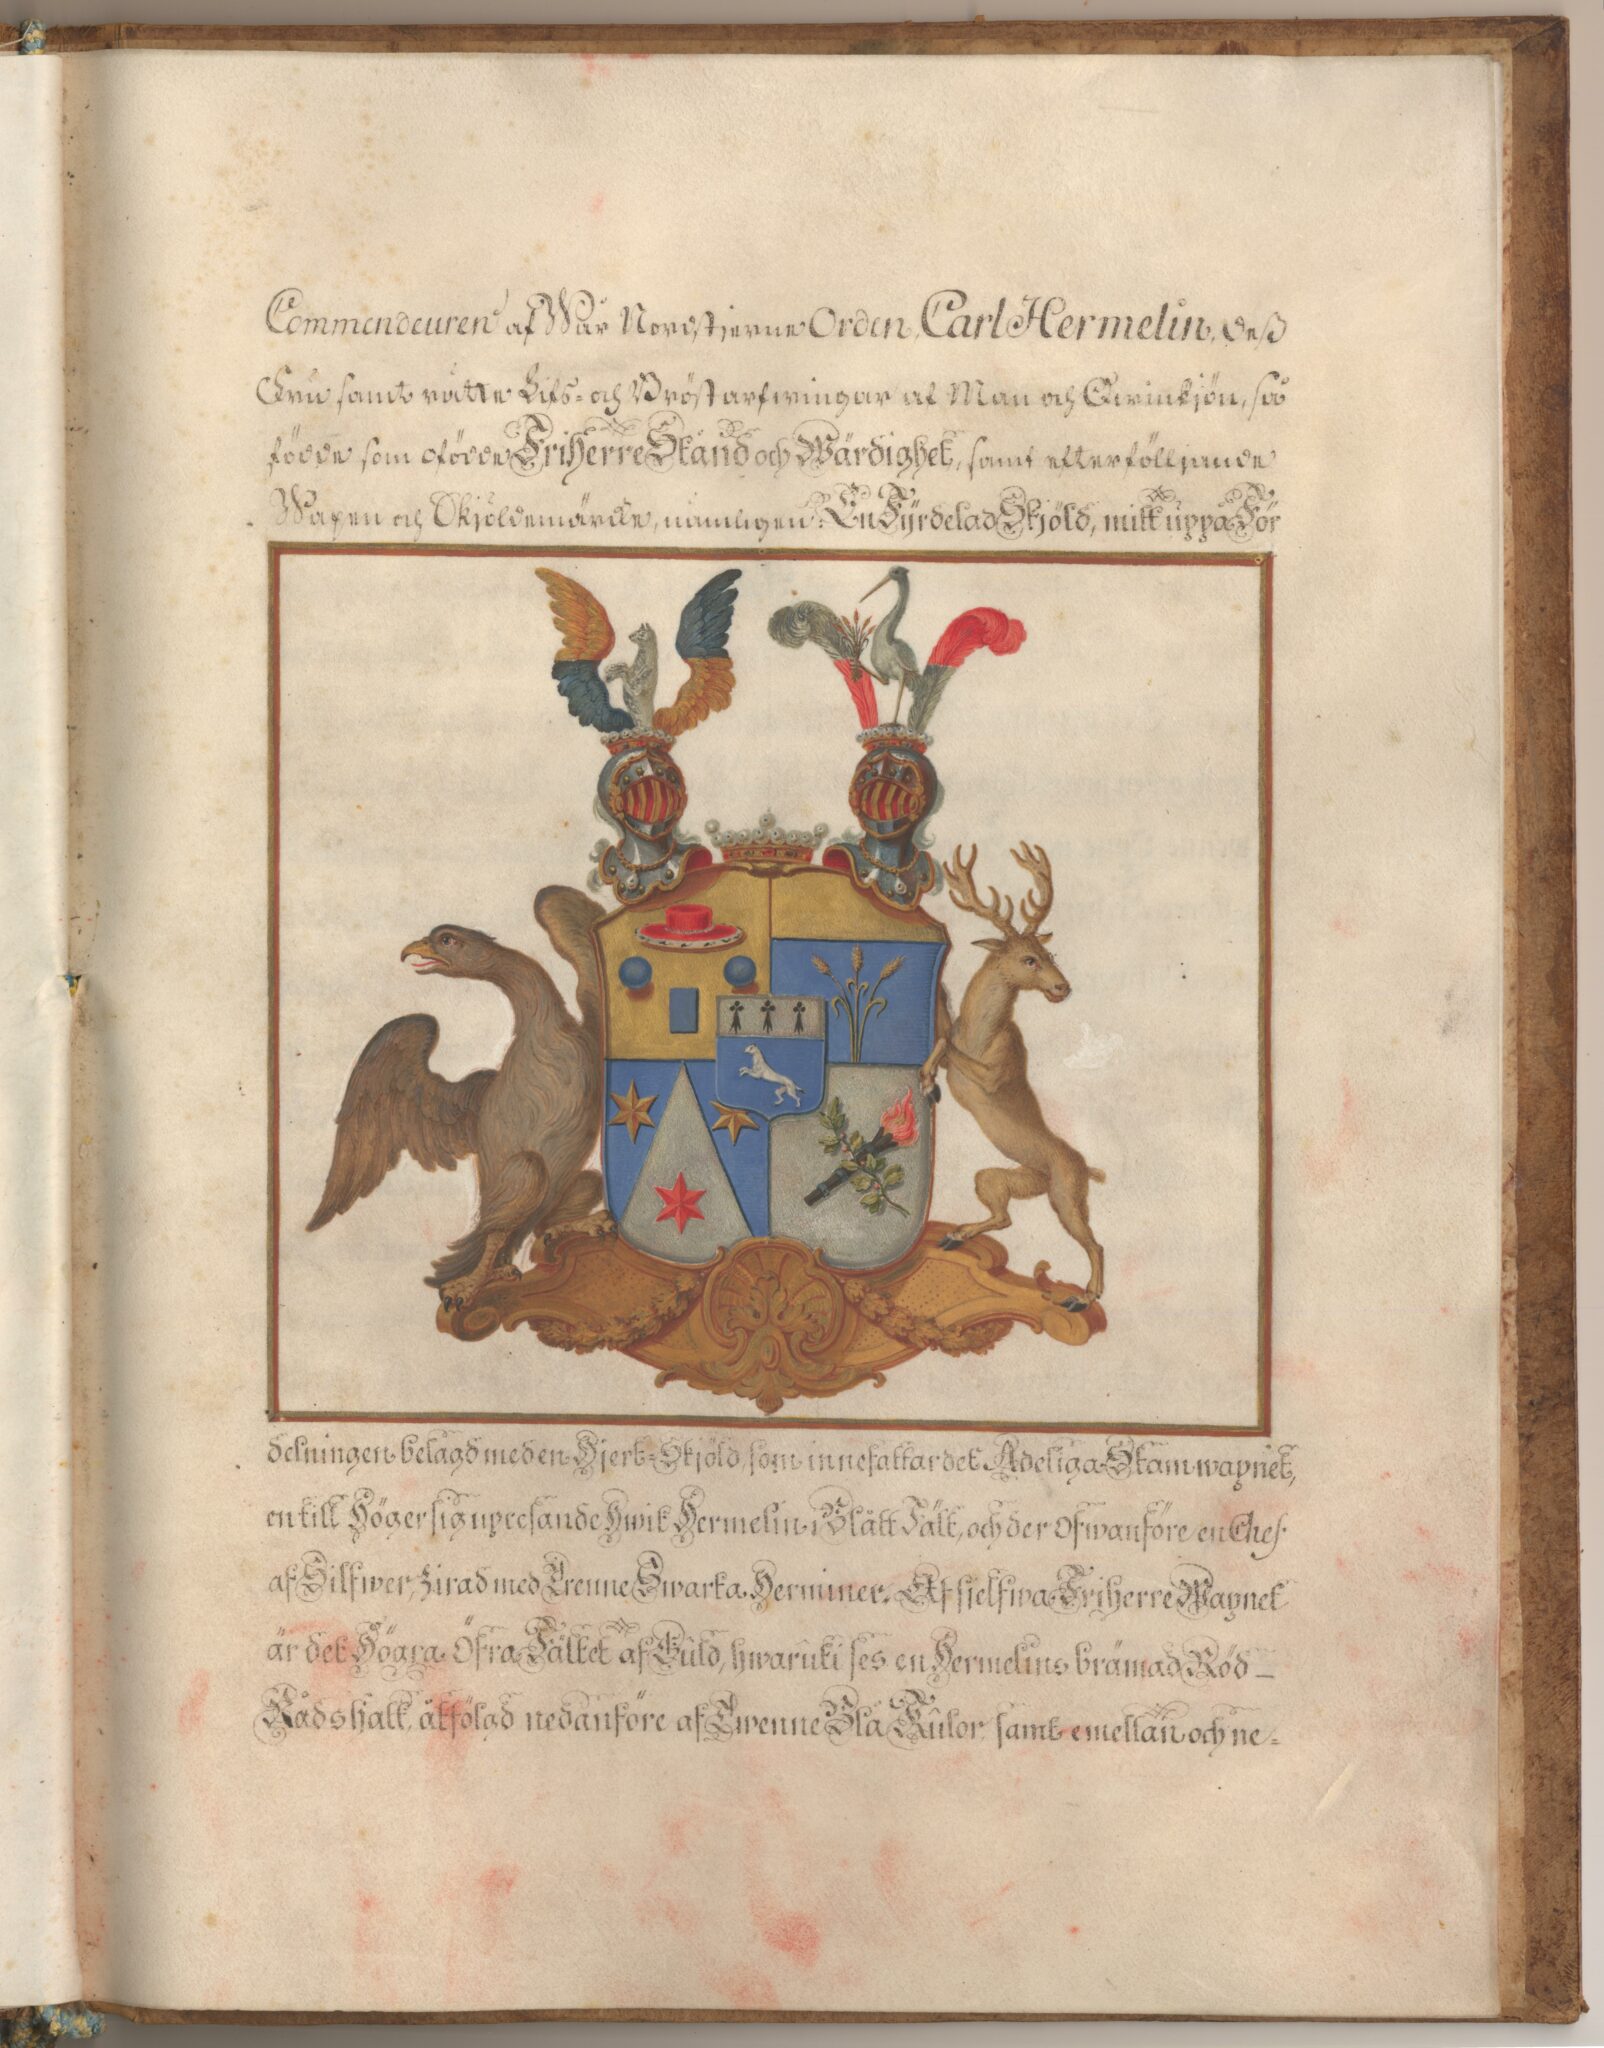 Commendeuren af Wår Nordstjerne Orden, Carl Hermelin, deß
Fru samt rätte Lifs- och Bröst arfwingar af Man och Qwinkjön, så
födde som ofödde Friherre Stånd och Wärdighet, samt efterföljande
Wapen och Skjöldemärcke, nämligen: En Fyrdelad Skjöld, mitt uppå För
delningen belagd med en Hjert-Skjöld, som innefattar det Adeliga Stamwapnet,
en till Höger sig upresande hwit Hermelin i Blått Fält, och der ofwanföre en Chef
af Silfwer, zirad med Trenne Swarta Herminer. Af sjelfwa Friherre Wapnet
är det Högra Öfra Fältet af Guld, hwaruti ses en Hermelins brämad Röd
Rådshatt, åtföldgd nedanföre af Twenne Blå Kulor, samt emellan och ne-